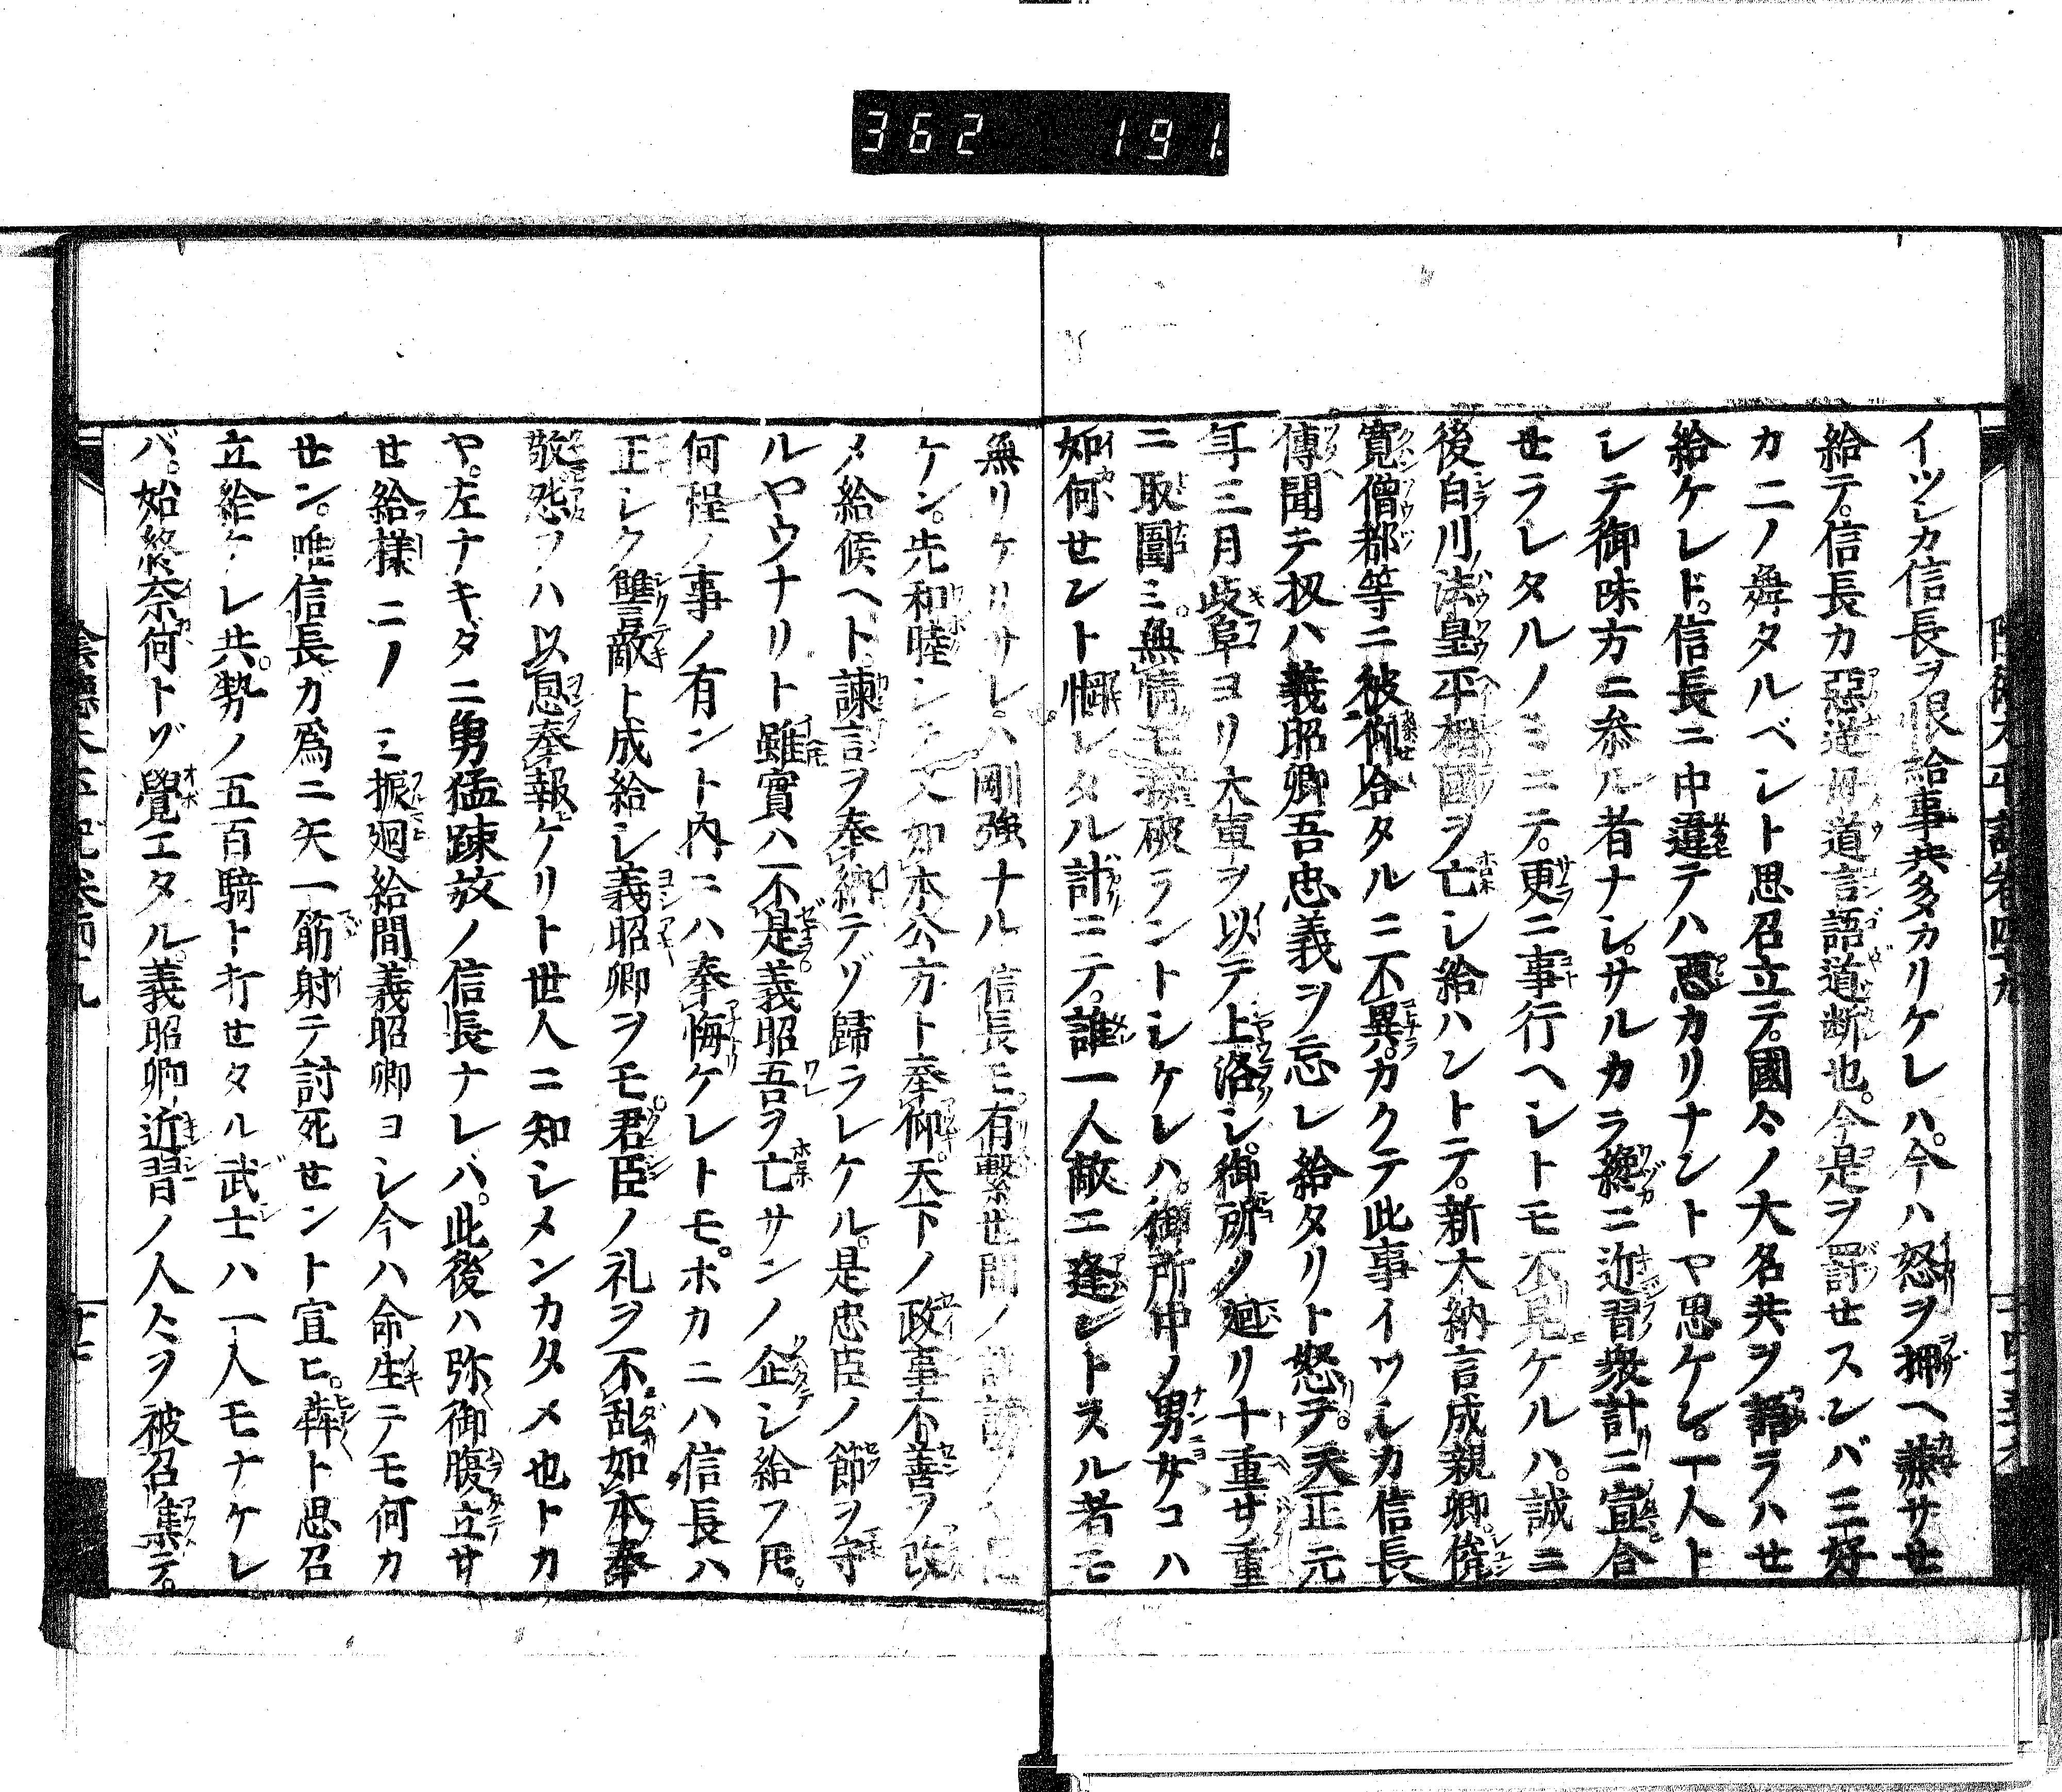 362 191
イツシカ信長ヲ恨給事共多カリケレハ。今ハ怒ヲ押ヘ兼サセ
給テ。信長カ惡逆無道言語道断也。今是ヲ罸セスンバ三好
カ二ノ舞タルベシト思召立テ。國々ノ大名共ヲ語ラハセ
給ケレド。信長ニ中違テハ悪カリナントヤ思ケン。一人ト
シテ御味方ニ参ル者ナシ。サルカラ纔ニ近習衆計ニ宣合
セラレタルノミニテ。更ニ事行ヘシトモ不見ケルハ。誠ニ
後白川法皇平相國ヲ亡シ給ハントテ。新大納言成親卿。俊
寛僧都等ニ被仰合タルニ不異。カクテ此事イツシカ信長
傳聞テ扨ハ義昭卿吾忠義ヲ忘レ給タリト怒テ。天正元
年三月岐阜ヨリ大軍ヲ以テ上洛シ。御所ノ廻リ十重サ重
ニ取圍ミ。無情モ攻破ラントシケレハ。御所中ノ男女コハ
如何セント惘レタル計ニテ。誰一人敵ニ逢ントスル者モ
無リケリサレハ剛強ナル信長モ。有繋世間ノ
ケン。先和睦シ又如本公方ト奉仰。天下ノ政事不善ヲ改
メ給候ヘト。諫言ヲ奉納テゾ歸ラレケル。是忠臣ノ節ヲ守
ルヤウナリト雖實ハ不是。義昭吾ヲ亡サンノ企シ給フ圧。
何程ノ事ノ有ント内ニハ奉悔ケレトモ。ホカニハ信長ハ
正シク讐敵ト成給シ義昭卿ヲモ。君臣ノ礼ヲ不乱如本奉
敬。怨ヲハ以恩奉報ケリト世人ニ知シメンカタメ也トカ
ヤ。左ナキダニ勇猛踈放ノ信長ナレバ。此後ハ弥御腹立サ
せ給様ニノミ振廻給間義昭卿ヨシ今ハ命生テモ何カ
せン。唯信長カ爲ニ矢一筋射テ討死せント宣ヒ。犇ト思召
立給ケレ共。勢ノ五百騎ト打せタル武士ハ一人モナケレ
バ。始終奈何トゾ覺エタル。義昭卿近習ノ人々ヲ被召集テ。